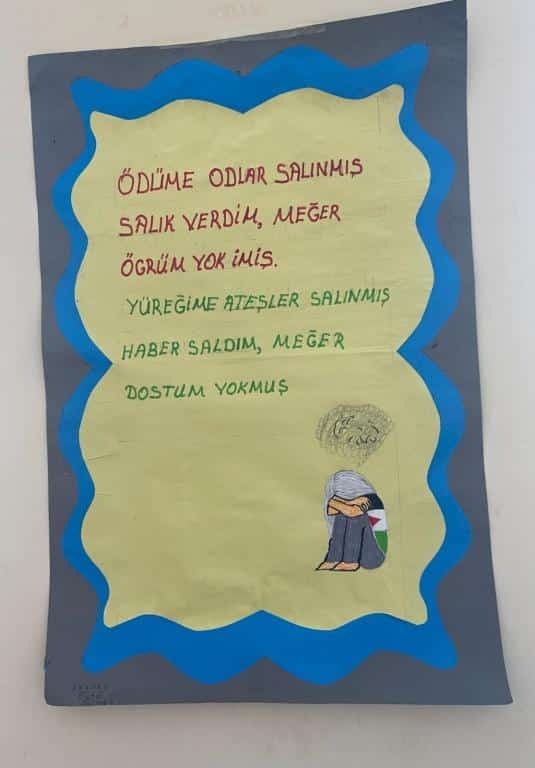 ÖDÜME ODLAR SALINMIŞ
SALIK VERDİM, MEĞER
ÖGRÜM YOK İMİŞ.
YÜREĞİME ATEŞLER SALINMIŞ
HABER SALDIM, MEĞER
DOSTUM YOKMUŞ